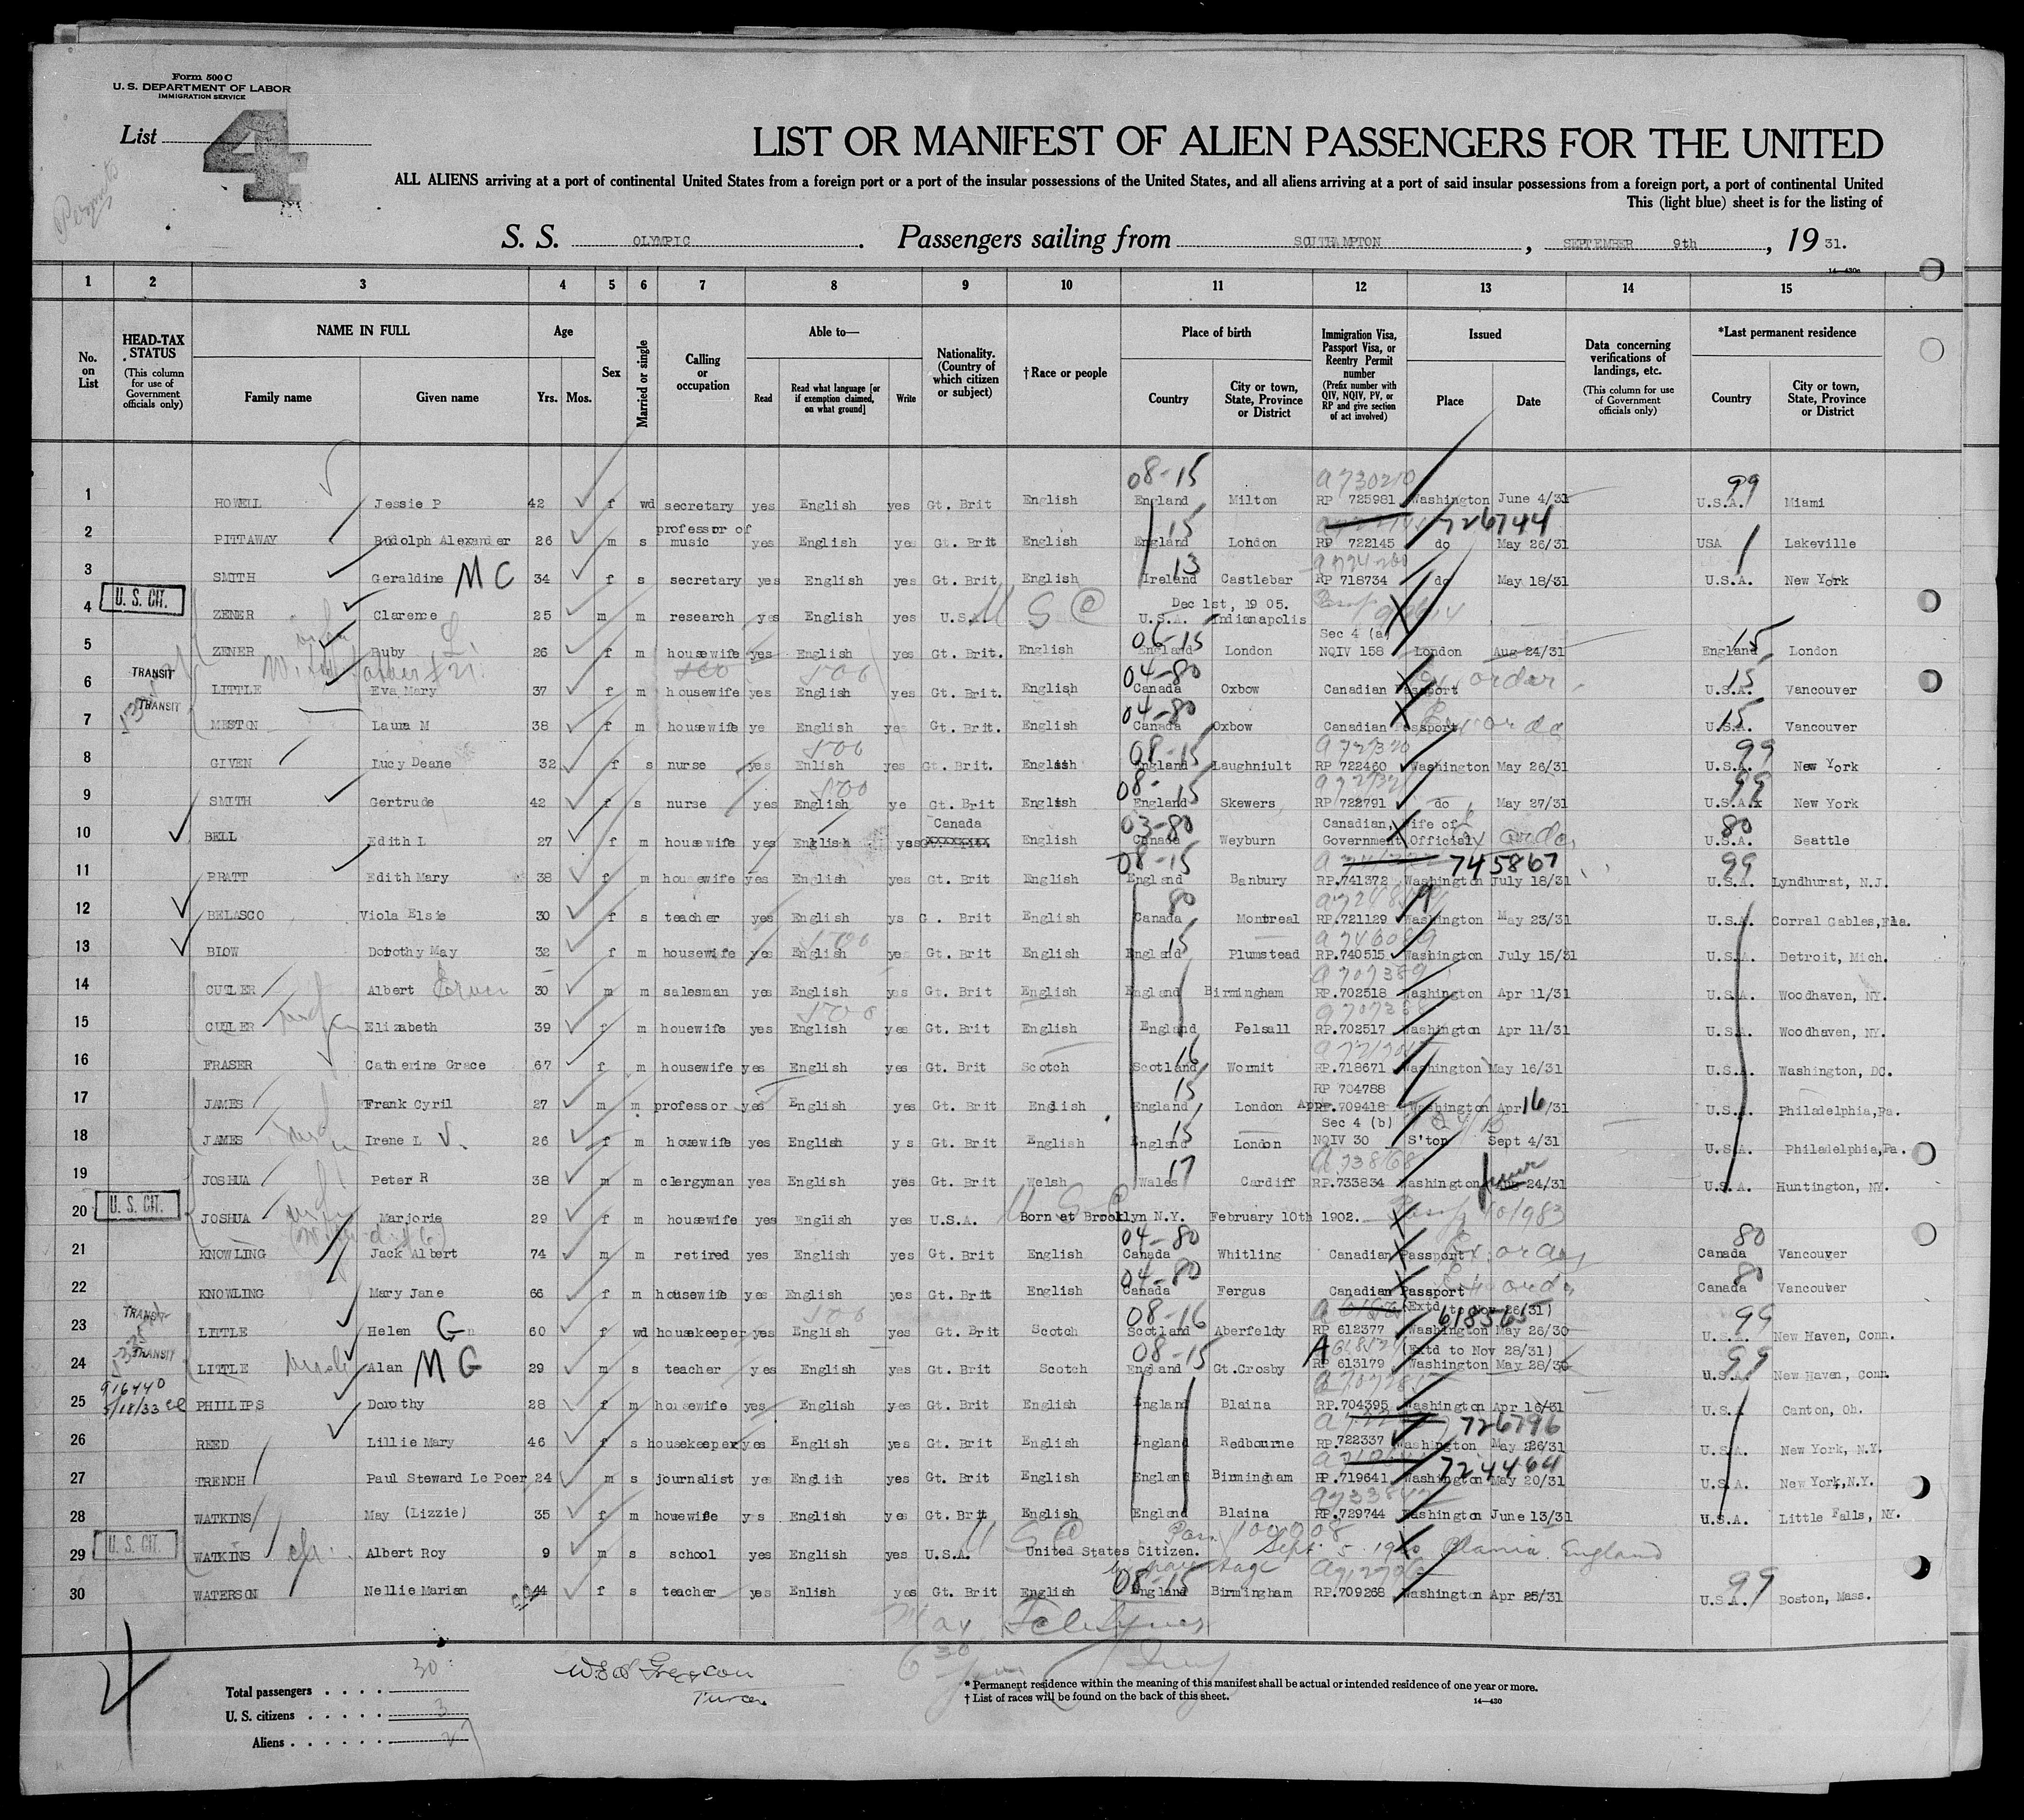 Form 500 C
U. S. DEPARTMENT OF LABOR
IMMIGRATION SERVICE
List 4
Permits
LIST OR MANIFEST OF ALIEN PASSENGERS FOR THE UNITED
ALL ALIENS arriving at a port of continental United States from a foreign port or a port of the insular possessions of the United States, and all aliens arriving at a port of said insular possessions from a foreign port, a port of continental United
This (light blue) sheet is for the listing of
S. S. OLYMPIC. Passengers sailing from SOUTHAMPTON, SEPTEMBER 9th, 19 31.
14—430c
1 2 3 4 5 6 7 8 9 10 11 12 13 14 15
No. on List
HEAD-TAX STATUS (This column for use of Government officials only)
NAME IN FULL Family name Given name
Age Yrs. Mos.
Sex
Married or single
Calling or occupation
Able to— Read Read what language [or if exemption claimed, on what ground] Write
Nationality. (Country of which citizen or subject)
†Race or people
Place of birth Country City or town, State, Province or District
Immigration Visa, Passport Visa, or Reentry Permit number (Prefix number with QIV, NQIV, PV, or RP and give section of act involved)
Issued Place Date
Data concerning verifications of landings, etc. (This column for use of Government officials only)
*Last permanent residence Country City or town, State, Province or District
08-15 a730210 99
1 HOWELL Jessie P 42 f wd secretary yes English yes Gt. Brit English England Milton RP 725981 Washington June 4/31 U.S.A. Miami
professor of 15 726744
2 PITTAWAY Rudolph Alexander 26 m s music yes English yes Gt. Brit English England London RP 722145 do May 26/31 USA Lakeville
13 a724200
3 SMITH Geraldine M C 34 f s secretary yes English yes Gt. Brit English Ireland Castlebar RP 718734 do May 18/31 U.S.A. New York
U. S. CIT. Dec 1st, 19 05.
4 ZENER Clarence 25 m m research yes English yes U.S.A. U S C U.S.A. Indianapolis
06-15 Sec 4 (a) 15
5 ZENER Ruby 26 f m housewife yes English yes Gt. Brit. English England London NQIV 158 London Aug 24/31 England London
TRANSIT 500 04-80 15
6 LITTLE Eva Mary 37 f m housewife yes English yes Gt. Brit. English Canada Oxbow Canadian Passport Ex order U.S.A. Vancouver
TRANSIT 04-80 15
7 MESTON Laura M 38 f m housewife ye English yes Gt. Brit. English Canada Oxbow Canadian Passport U.S.A. Vancouver
500 08-15 a727320 99
8 GIVEN Lucy Deane 32 f s nurse yes Enlish yes Gt. Brit. English England Laughniult RP 722460 Washington May 26/31 U.S.A. New York
500 08-15 99
9 SMITH Gertrude 42 f s nurse yes English ye Gt. Brit English England Skewers RP 722791 do May 27/31 U.S.A. New York
Canada 03-80 Canadian, Wife of 80
10 BELL Edith L 27 f m housewife yes English yes English Canada Weyburn Government Official U.S.A. Seattle
08-15 745867 99
11 PRATT Edith Mary 38 f m housewife yes English yes Gt. Brit English England Banbury RP.741372 Washington July 18/31 U.S.A. Lyndhurst, N.J.
80
12 BELASCO Viola Elsie 30 f s teacher yes English ys G . Brit English Canada Montreal RP.721129 Washington May 23/31 U.S.A. Corral Gables, Fla.
500 15 a746089
13 BLOW Dorothy May 32 f m housewife yes English ye Gt. Brit English England Plumstead RP.740515 Washington July 15/31 U.S.A. Detroit, Mich.
a707389
14 CUTLER Albert 30 m m salesman yes English yes Gt. Brit English England Birmingham RP.702518 Washington Apr 11/31 U.S.A. Woodhaven, NY.
500
15 CUTLER wife Elizabeth 39 f m houewife yes English yes Gt. Brit English England Pelsall RP.702517 Washington Apr 11/31 U.S.A. Woodhaven, NY.
16
16 FRASER Catherine Grace 67 f m housewife yes English yes Gt. Brit Scotch Scotland Wormit RP.718671 Washington May 16/31 U.S.A. Washington, DC.
15 RP 704788
17 JAMES Frank Cyril 27 m m professor yes English yes Gt. Brit English England London RP.709418 Washington Apr 16/31 U.S.A. Philadelphia, Pa.
15 Sec 4 (b)
18 JAMES wife Irene L V. 26 f m housewife yes English y s Gt. Brit English England London NQIV 30 S'ton Sept 4/31 U.S.A. Philadelphia, Pa.
17 a738168 June
19 JOSHUA Peter R 38 m m clergyman yes English yes Gt. Brit Welsh Wales Cardiff RP.733834 Washington 24/31 U.S.A. Huntington, NY.
U. S. CIT.
20 JOSHUA wife Marjorie 29 f m housewife yes English yes U.S.A. Born at Brooklyn N.Y. February 10th 1902. 401983
04-80 80
21 KNOWLING Jack Albert 74 m m retired yes English yes Gt. Brit English Canada Whitling Canadian Passport Canada Vancouver
04-80 80
22 KNOWLING Mary Jane 66 f m housewife yes English yes Gt. Brit English Canada Fergus Canadian Passport Canada Vancouver
TRANSIT 500 08-16 (Extd to Nov 26/31) 618565 99
23 LITTLE Helen G 60 f wd housekeeper yes English yes Gt. Brit Scotch Scotland Aberfeldy RP 612377 Washington May 26/30 U.S.A. New Haven, Conn.
TRANSIT 08-15 (Extd to Nov 28/31) 99
24 LITTLE Alan M G 29 m s teacher yes English yes Gt. Brit Scotch England Gt.Crosby RP 613179 Washington May 28/30 U.S.A. New Haven, Conn.
916440 5/18/33
25 PHILLIPS Dorothy 28 f m housewife yes English yes Gt. Brit English England Blaina RP.704395 Washington Apr 16/31 U.S.A. Canton, Oh.
726796
26 REED Lillie Mary 46 f s housekeeper yes English yes Gt. Brit English England Redbourne RP.722337 Washington May 26/31 U.S.A. New York, N.Y.
724464
27 TRENCH Paul Steward Le Poer 24 m s journalist yes English yes Gt. Brit English England Birmingham RP.719641 Washington May 20/31 U.S.A. New York, N.Y.
a733842
28 WATKINS May (Lizzie) 35 f m housewife yes English yes Gt. Brit English England Blaina RP.729744 Washington June 13/31 U.S.A. Little Falls, NY.
U. S. CIT. U S C Pass. 100008
29 WATKINS Albert Roy 9 m s school yes English yes U.S.A. United States Citizen. Sept. 5 Blania England
by parentage 08-15 99
30 WATERSON Nellie Marian 44 f s teacher yes Enlish yes Gt. Brit English England Birmingham RP.709268 Washington Apr 25/31 U.S.A. Boston, Mass.
4
Total passengers . . . . 30
U. S. citizens . . . . . 3
Aliens . . . . . . 27
* Permanent residence within the meaning of this manifest shall be actual or intended residence of one year or more.
† List of races will be found on the back of this sheet.
14—430